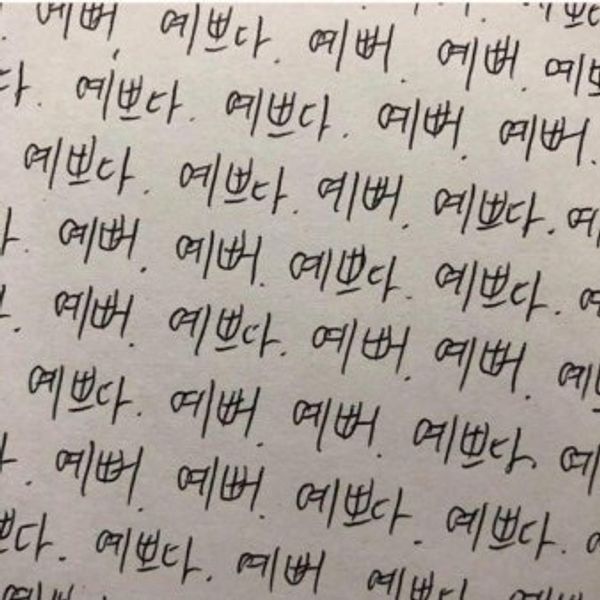 예뻐. 예쁘다. 예뻐. 예뻐. 예쁘
다. 예쁘다. 예쁘다. 예뻐. 예뻐.
예쁘다. 예쁘다. 예뻐. 예쁘다. 예
예뻐. 예뻐. 예쁘다. 예쁘다. 예
예뻐. 예쁘다. 예뻐. 예뻐. 예쁘
예쁘다. 예뻐. 예뻐. 예쁘다. 예
예뻐. 예뻐. 예쁘다. 예쁘다.
쁘다. 예쁘다. 예뻐 예쁘다.
예뻐